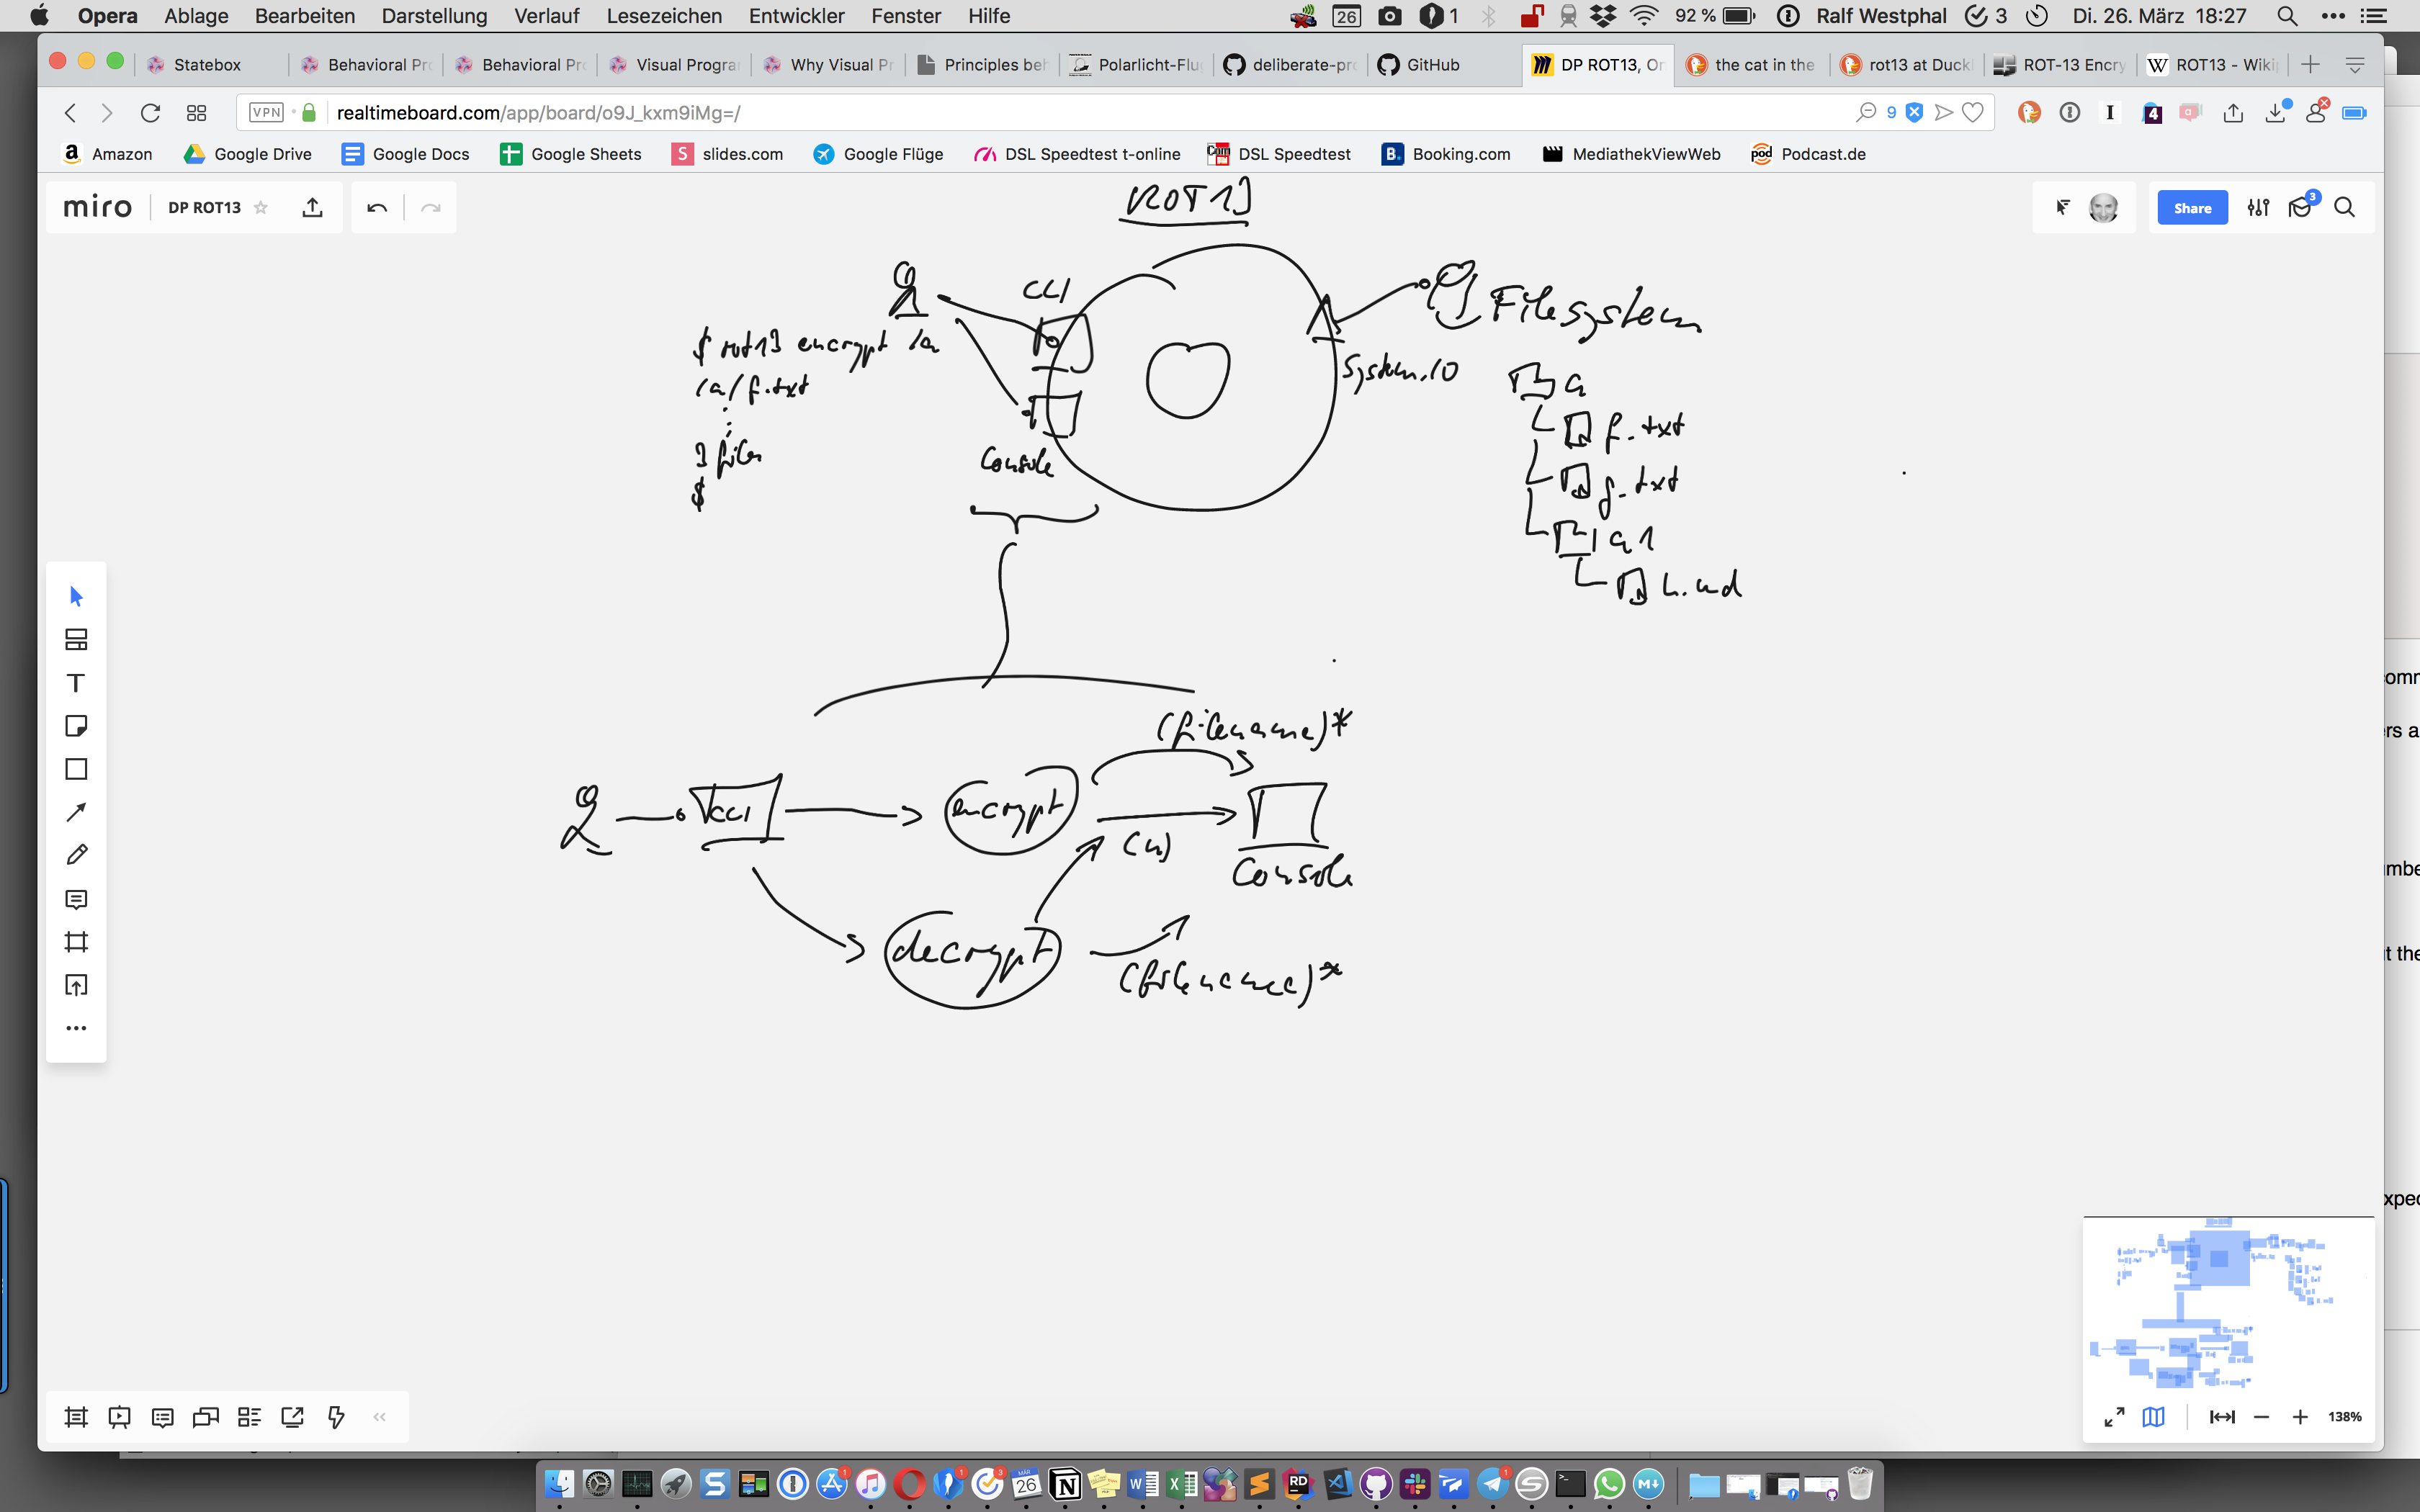 Opera Ablage Bearbeiten Darstellung Verlauf Lesezeichen Entwickler Fenster Hilfe 26 1 92 % Ralf Westphal 3 Di. 26. März 18:27
Statebox Behavioral Pr Behavioral Pr Visual Progra Why Visual Pr Principles beh Polarlicht-Flu deliberate-pr GitHub DP ROT13, On the cat in the rot13 at Duck ROT-13 Encry ROT13 - Wiki
VPN realtimeboard.com/app/board/o9J_kxm9iMg=/ 9 4
Amazon Google Drive Google Docs Google Sheets slides.com Google Flüge DSL Speedtest t-online DSL Speedtest Booking.com MediathekViewWeb Podcast.de
miro DP ROT13 Share 3
ROT13
CLI
Filesystem
$ rot13 encrypt /a
/a/f.txt
:
3 files
$
Console
System.IO
a
f.txt
g.txt
a1
h.md
(filename)*
CLI
encrypt
(n)
Console
decrypt
(filename)*
comm
rs a
mbe
t the
xpec
138%